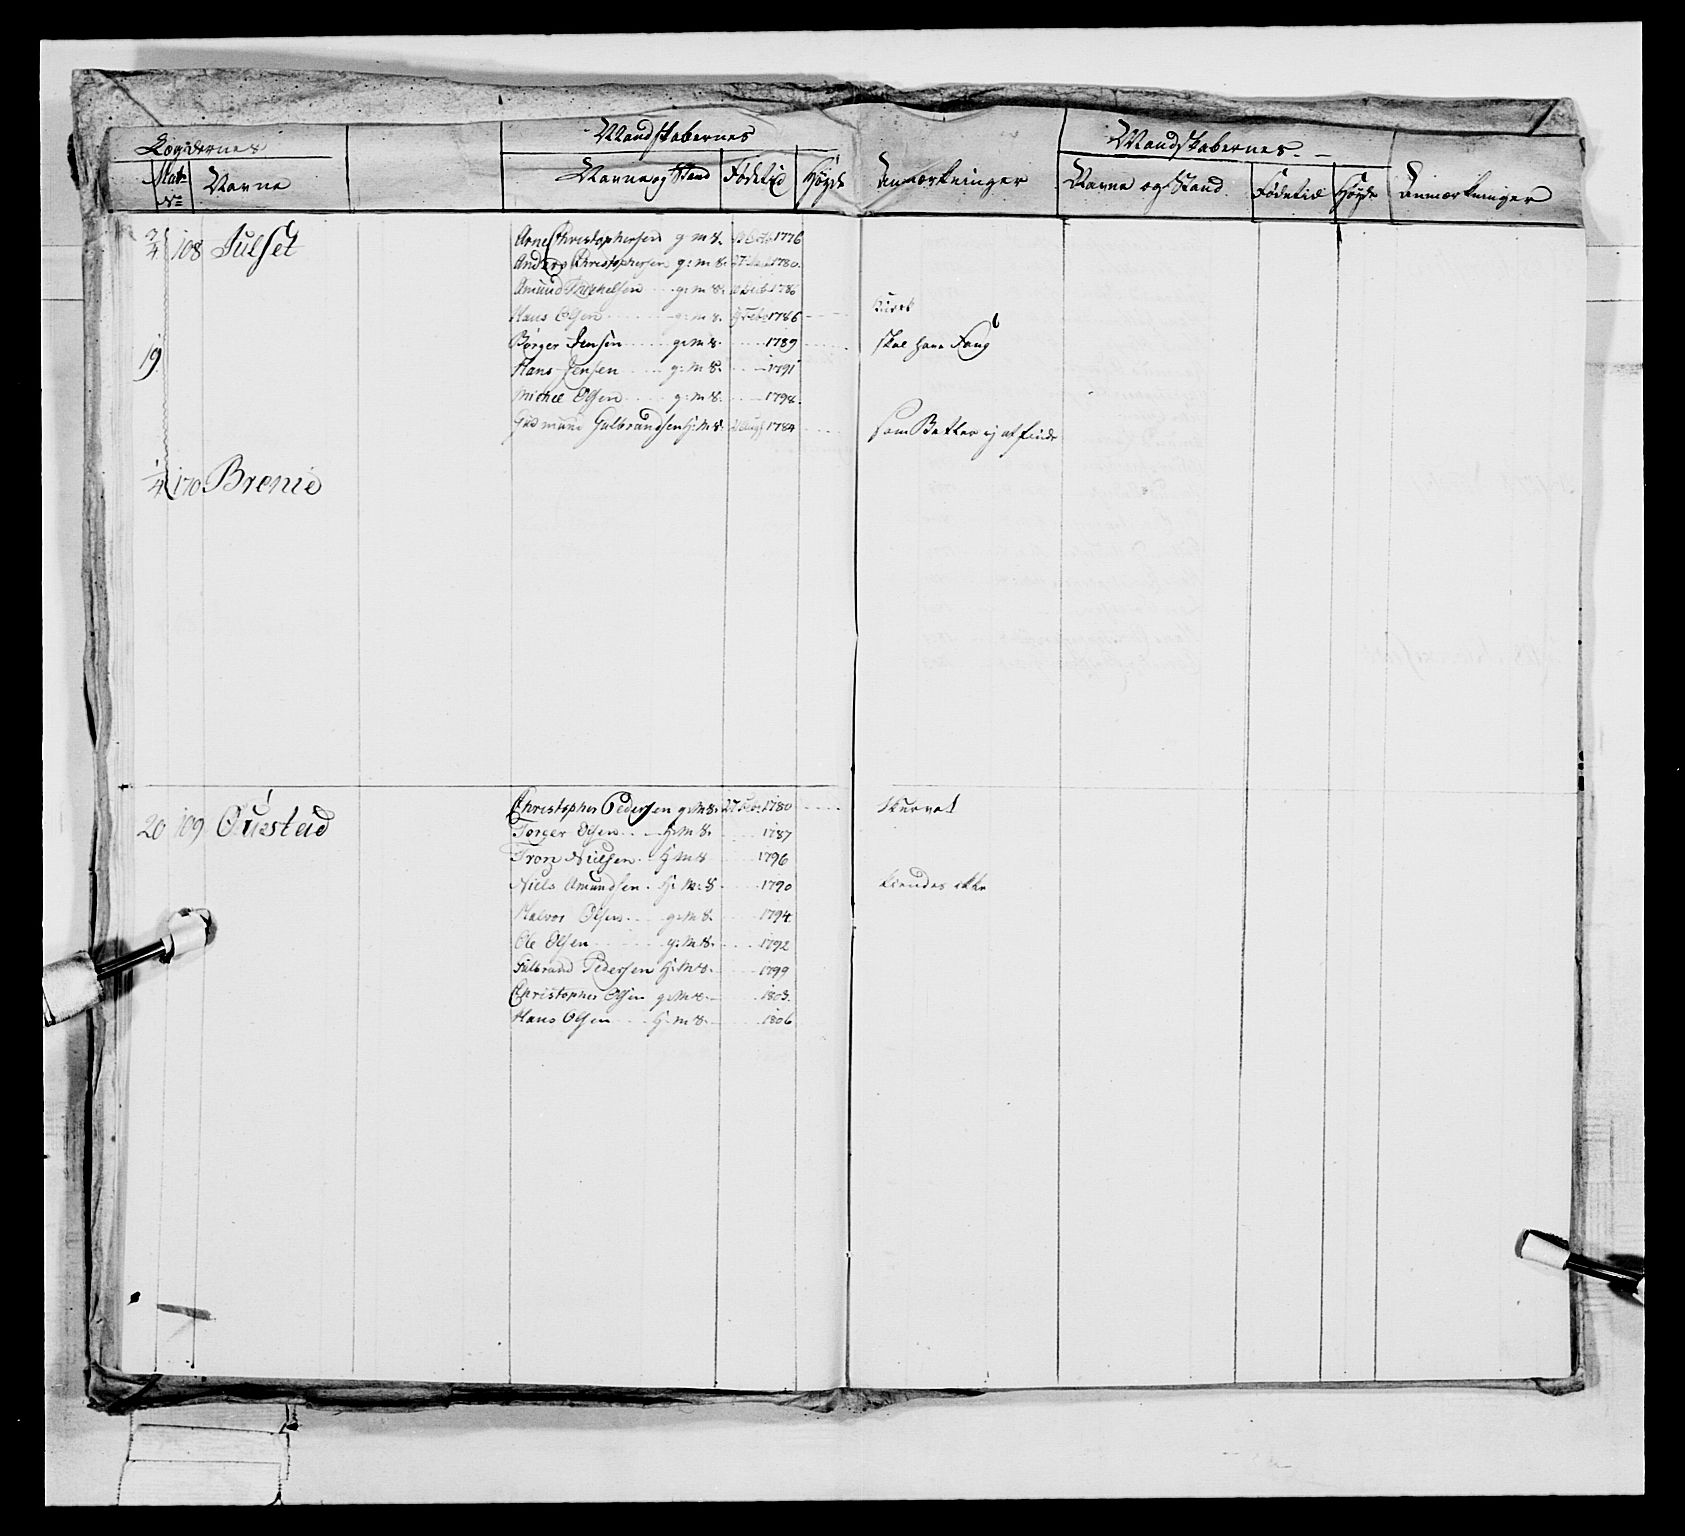 Lægdernes
Mandskabernes
Mandskabernes
Matr No
Navne
Navne og Stand
Fødetid
Høyde
Anmærkninger
Navne og Stand
Fødetid
Høyde
Anmærkninger
3/4 108 Julset
Arne Christophersen g: m 8. 1776
Anders Christophersen g: m 8. 27 1780.
Amund g: m 8. 1786
Hans Olsen g: m 8. 1786
19
Børger Jensen g: M 8. 1789 skal have
Hans Jensen g: M 8. 1791
Michel Olsen g: m 8. 1794.
Gudmund Gulbrandsen H: M 8. 1784 ej at finde
1/4 170 Brenie
20 109 Øuestad
Christopher Pedersen g: M 8. 27 1780
Torger Olsen H: M 8. 1787
Tron Nielsen H: M 8 1796
Niels Amundsen H: M: 8 1790 kiendes ikke
Halvor Olsen g: M 8. 1794.
Ole Olsen g: M 8. 1792
Gulbrand Pedersen H: M 8. 1799
Christopher Olsen g: M 8 1803.
Hans Olsen H: M 8. 1806